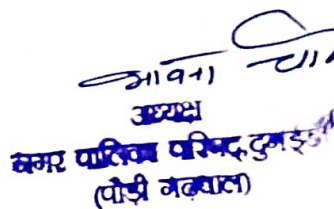 भावना चौ
अध्यक्ष
नगर पालिका परिषद, दुगड्डा
(पौड़ी गढ़वाल)